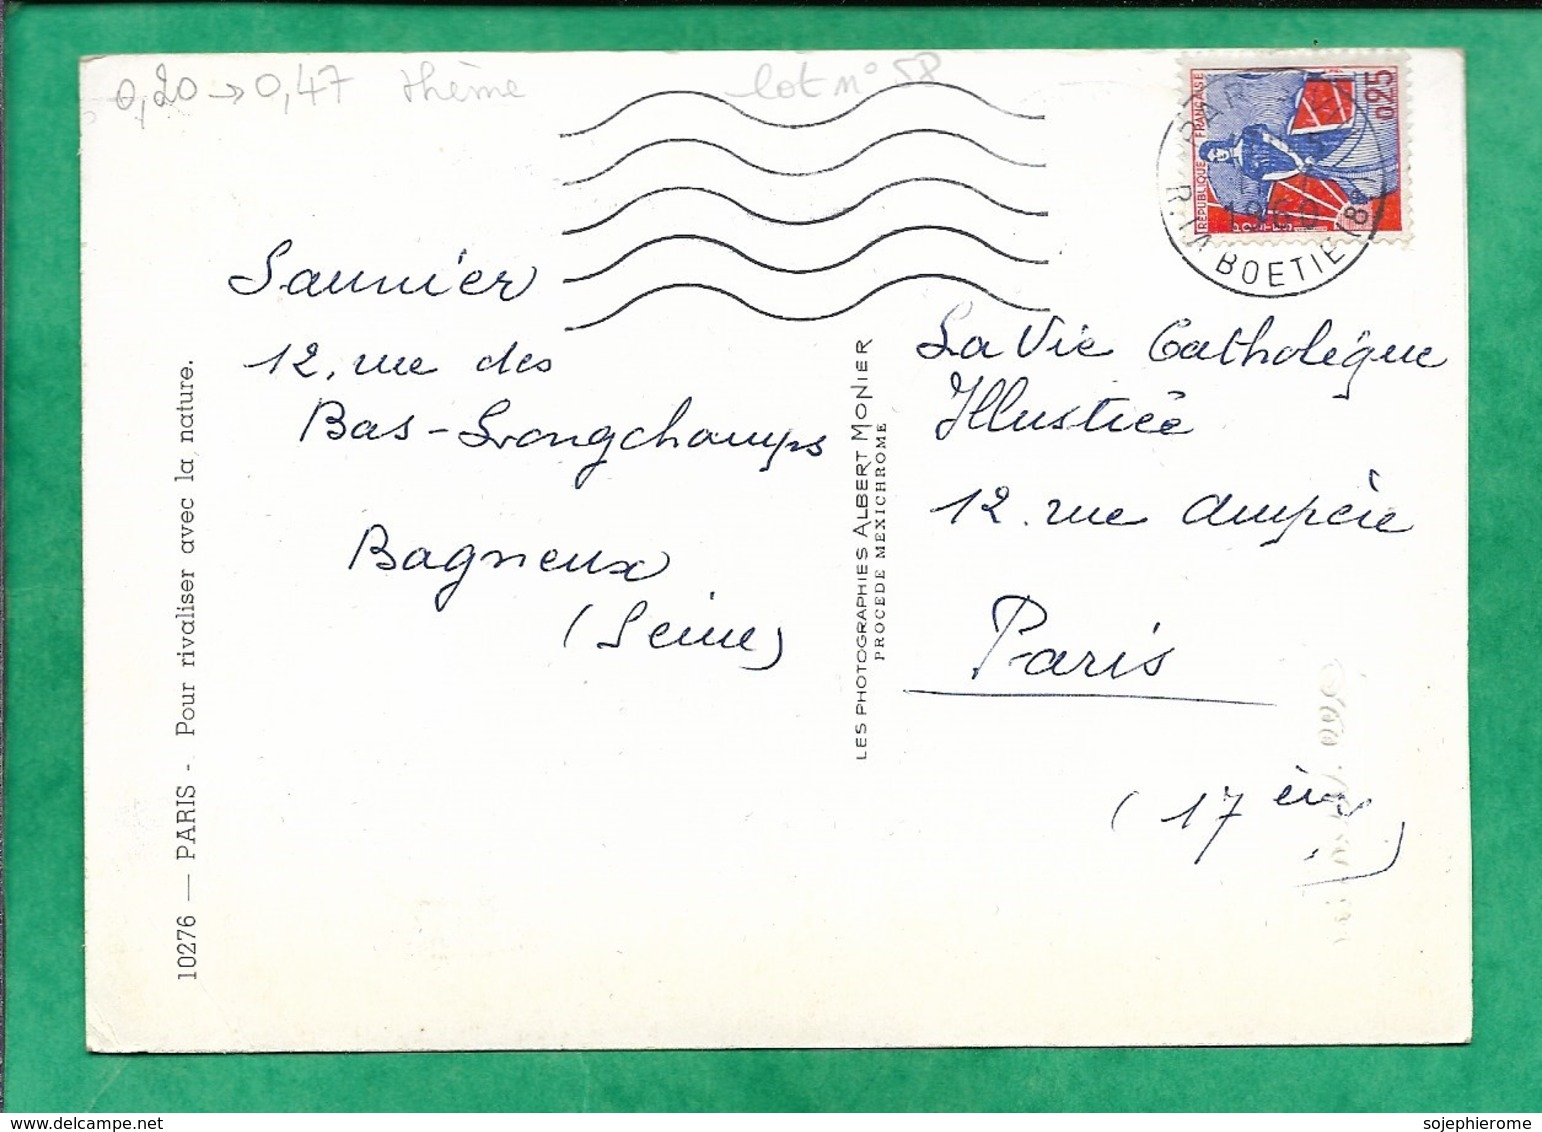 0,20 → 0,47 thème
lot n° 58
RÉPUBLIQUE FRANÇAISE
0,25
POSTES
1960
R. LA BOETIE (8e)
Saunier
12, rue des
Bas-Longchamps
Bagneux
(Seine)
10276 — PARIS - Pour rivaliser avec la nature.
LES PHOTOGRAPHIES ALBERT MONIER
PROCEDE MEXICHROME
La Vie Catholique
Illustrée
12. rue Ampère
Paris
(17 ème)
sojephierome